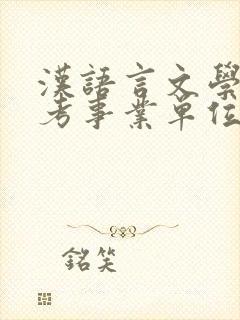 漢語言文學
考事業單位
銘笑